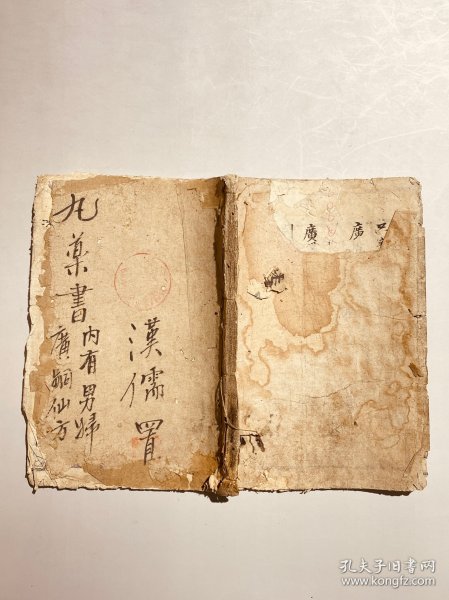 丸藥書
內有男婦
廣嗣仙方
漢儒置
廣
廣
孔夫子旧书网
www.kongfz.com